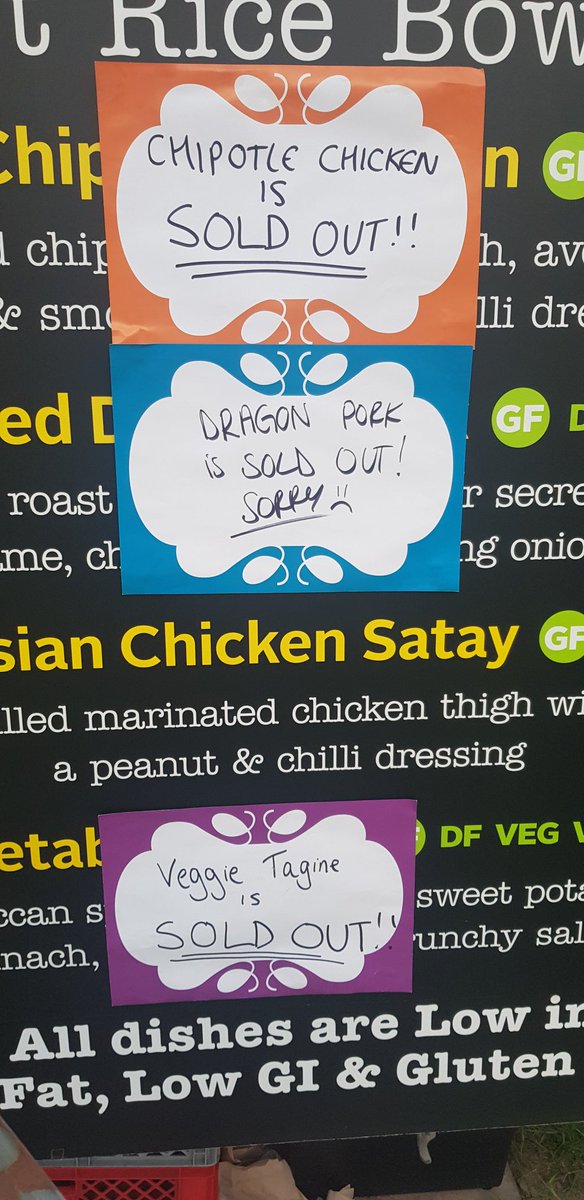 t Rice Bow
Chip n GF
CHIPOTLE CHICKEN
IS
SOLD OUT!!
d chip h, avo
& smo lli dre
ed D GF D
DRAGON PORK
is SOLD OUT!
SORRY
roast r secre
me, ch ng onio
sian Chicken Satay GF
illed marinated chicken thigh wi
a peanut & chilli dressing
etab DF VEG V
Veggie Tagine
IS
SOLD OUT!!
ccan s sweet pota
nach, runchy sal
All dishes are Low in
Fat, Low GI & Gluten